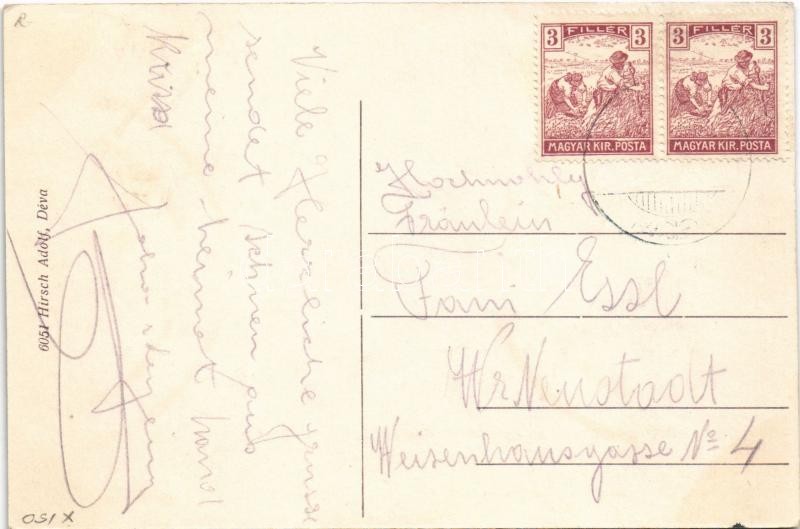 R.
3 FILLÉR 3
MAGYAR KIR. POSTA
3 FILLÉR 3
MAGYAR KIR. POSTA
Viele Herzliche grüsse
sendet Ihnen aus
meine heimat
6051 Hirsch Adolf, Déva
Fräulein
Fani Essl
Wr Neustadt
Weisenhausgasse No 4
OSIX